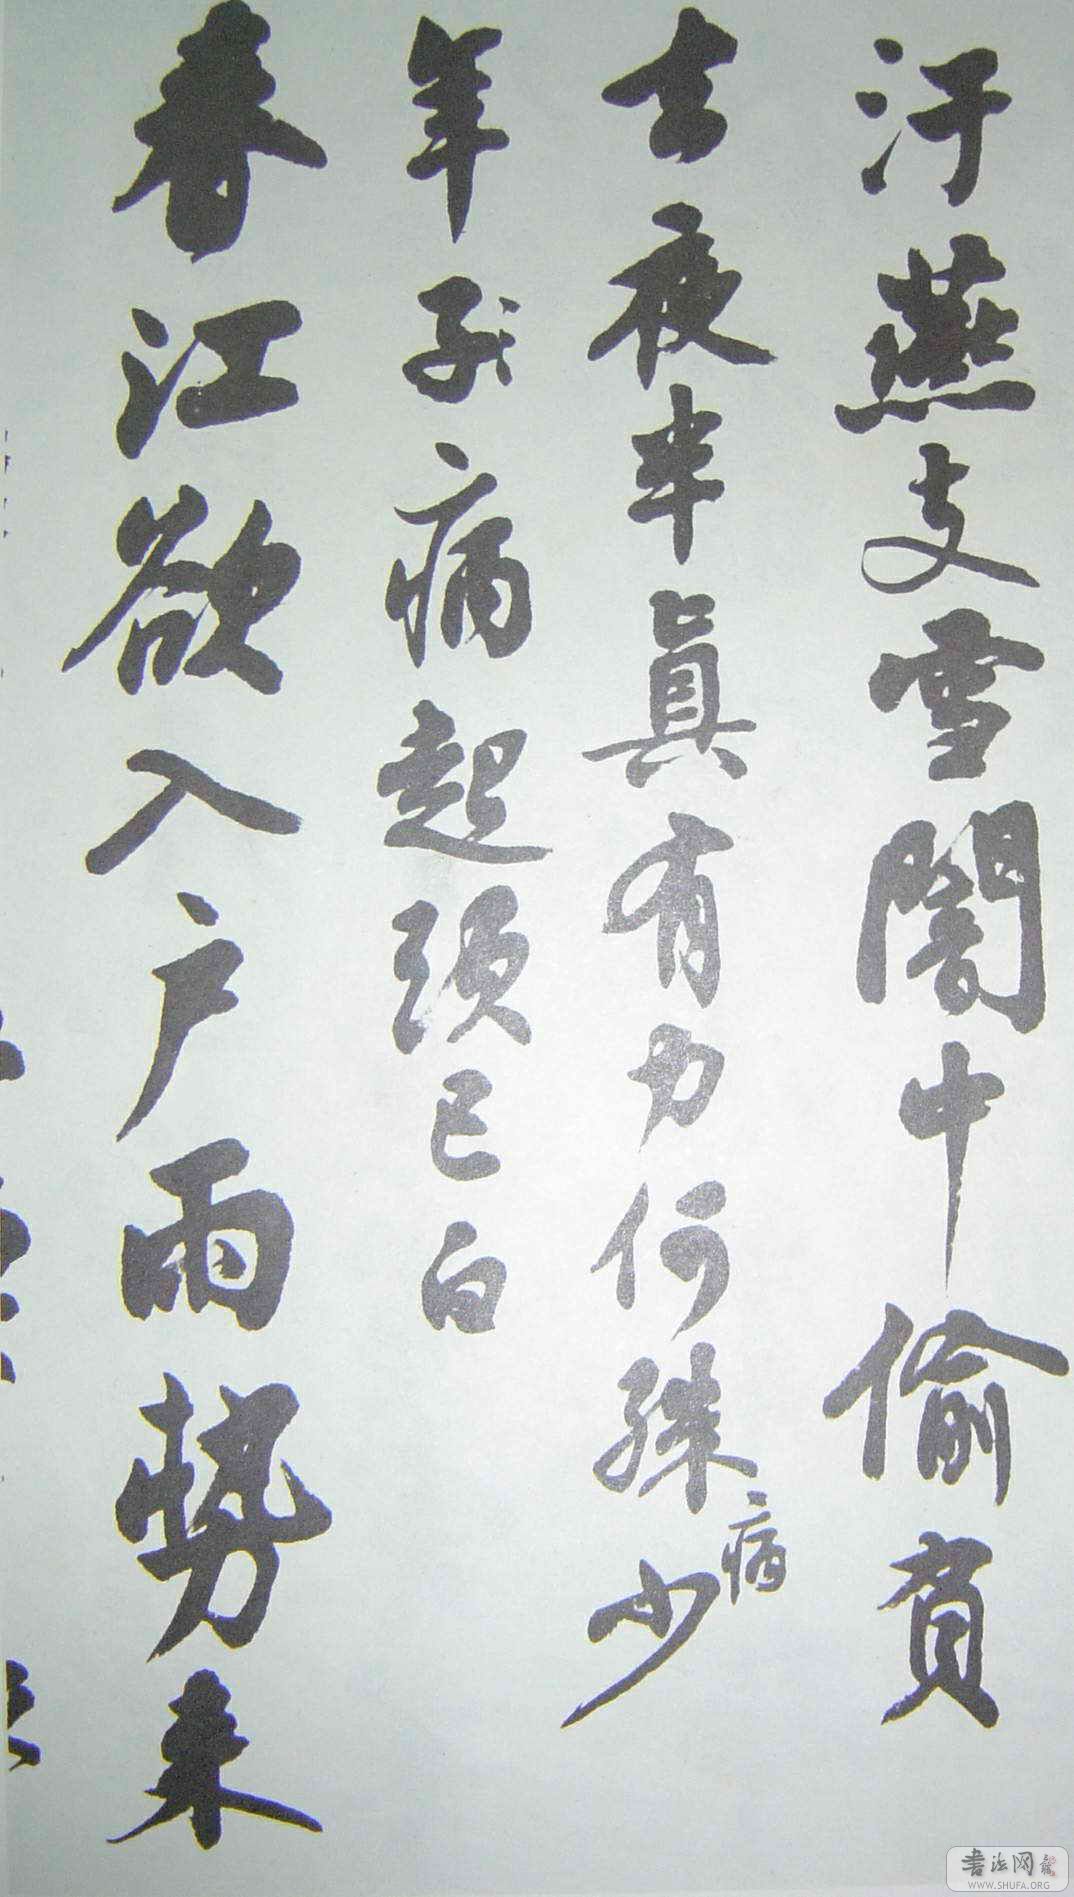 汙燕支雪闇中偷負
去夜半真有力何殊少
病
年子病起頭已白
春江欲入戶雨勢来
書法网
WWW.SHUFA.ORG